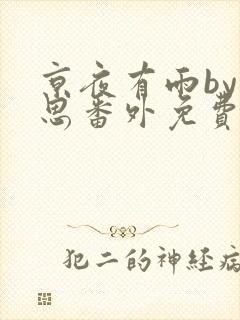 京夜有雨by
思番外免費
犯二的神経病